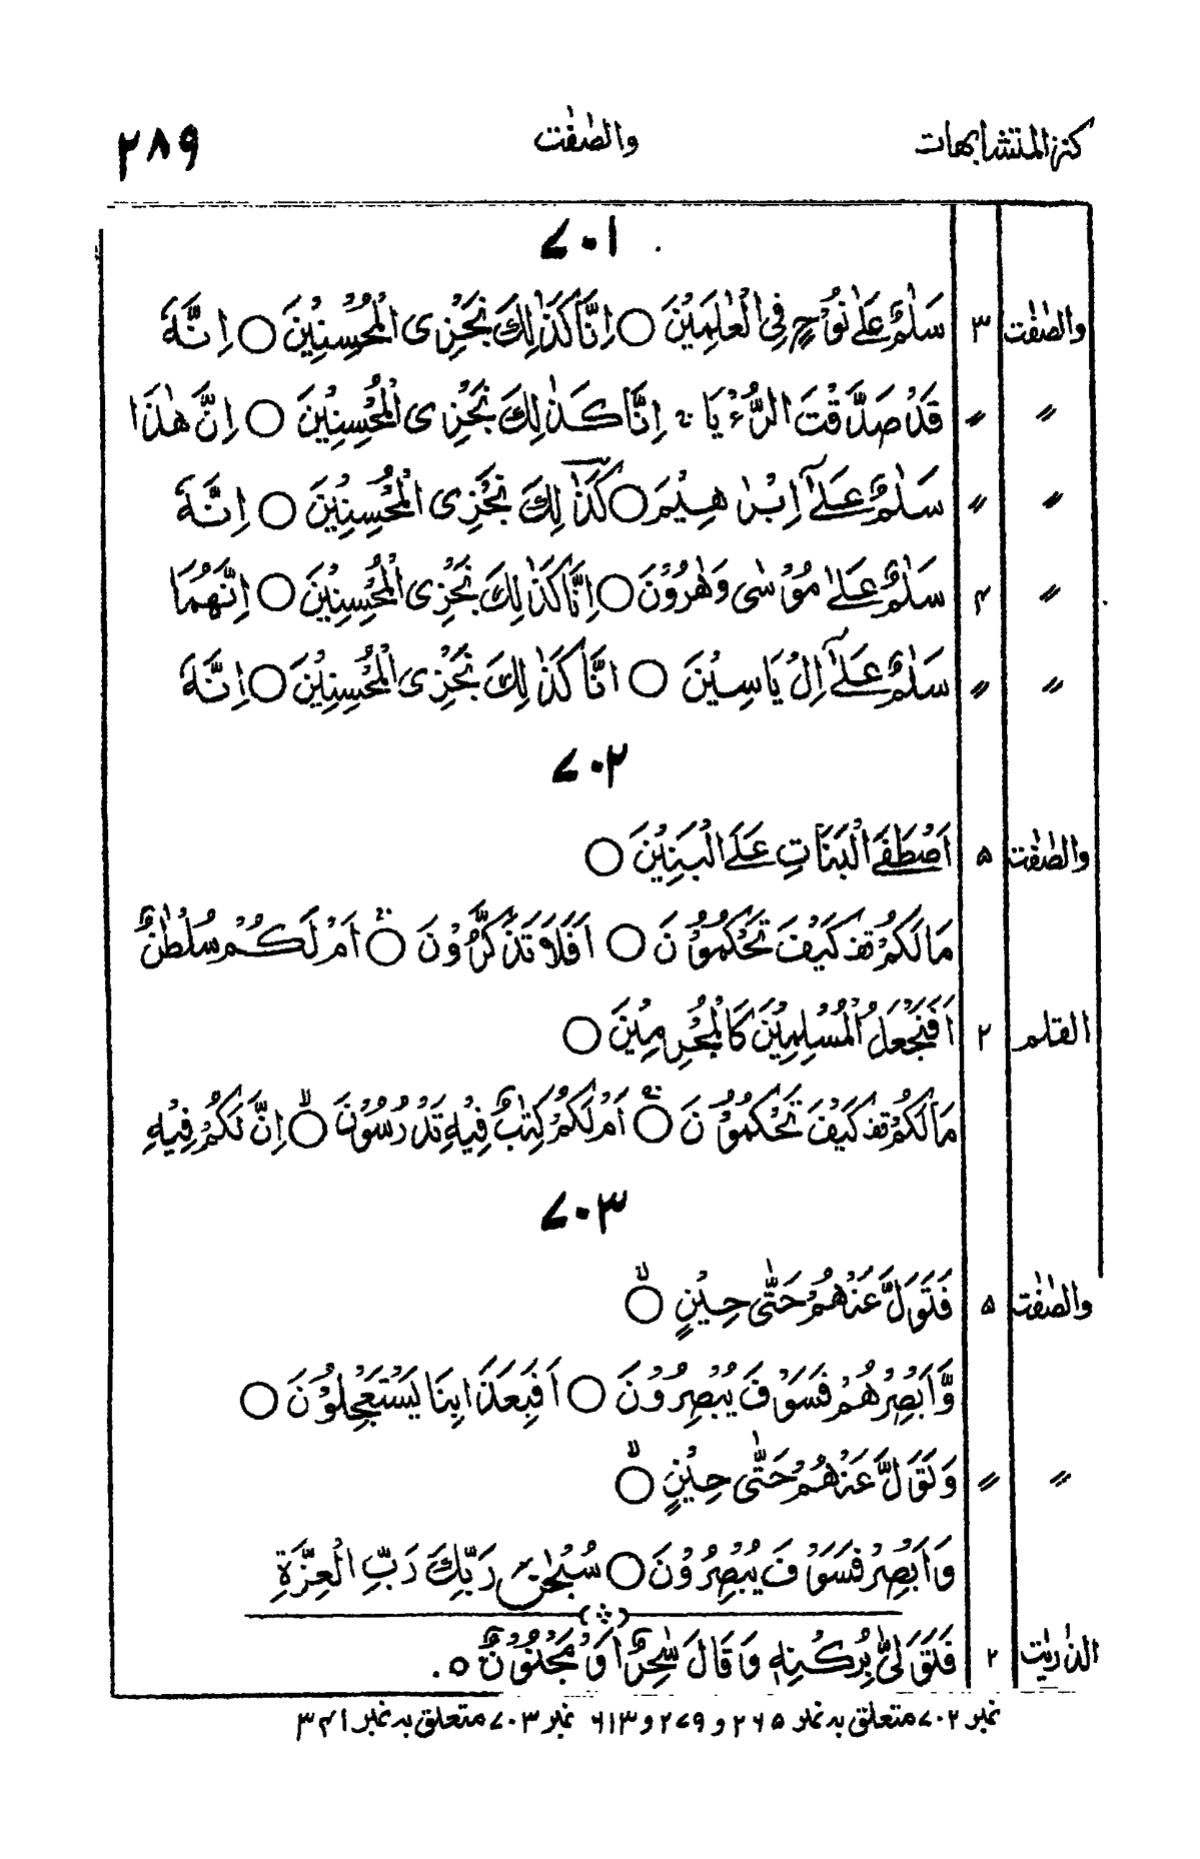 كنز المتشابہات والصّٰفّٰت ۲۸۹
۷۰۱
والصّٰفّٰت ۳ سَلٰمٌ عَلٰى نُوْحٍ فِى الْعٰلَمِيْنَ ○ اِنَّا كَذٰلِكَ نَجْزِى الْمُحْسِنِيْنَ ○ اِنَّهٗ
〃 〃 قَدْ صَدَّقْتَ الرُّءْيَا ۚ اِنَّا كَذٰلِكَ نَجْزِى الْمُحْسِنِيْنَ ○ اِنَّ هٰذَا
〃 〃 سَلٰمٌ عَلٰٓى اِبْرٰهِيْمَ ○ كَذٰلِكَ نَجْزِى الْمُحْسِنِيْنَ ○ اِنَّهٗ
〃 ۴ سَلٰمٌ عَلٰى مُوْسٰى وَهٰرُوْنَ ○ اِنَّا كَذٰلِكَ نَجْزِى الْمُحْسِنِيْنَ ○ اِنَّهُمَا
〃 〃 سَلٰمٌ عَلٰٓى اِلْ يَاسِيْنَ ○ اِنَّا كَذٰلِكَ نَجْزِى الْمُحْسِنِيْنَ ○ اِنَّهٗ
۷۰۲
والصّٰفّٰت ۵ اَصْطَفَى الْبَنَاتِ عَلَى الْبَنِيْنَ ○
مَا لَكُمْ قف كَيْفَ تَحْكُمُوْنَ ○ اَفَلَا تَذَكَّرُوْنَ ○ اَمْ لَكُمْ سُلْطٰنٌ
القلم ۲ اَفَنَجْعَلُ الْمُسْلِمِيْنَ كَالْمُجْرِمِيْنَ ○
مَا لَكُمْ قف كَيْفَ تَحْكُمُوْنَ ○ اَمْ لَكُمْ كِتٰبٌ فِيْهِ تَدْرُسُوْنَ ○ اِنَّ لَكُمْ فِيْهِ
۷۰۳
والصّٰفّٰت ۵ فَتَوَلَّ عَنْهُمْ حَتّٰى حِيْنٍ ○
وَّاَبْصِرْهُمْ فَسَوْفَ يُبْصِرُوْنَ ○ اَفَبِعَذَابِنَا يَسْتَعْجِلُوْنَ ○
〃 〃 وَتَوَلَّ عَنْهُمْ حَتّٰى حِيْنٍ ○
وَّاَبْصِرْ فَسَوْفَ يُبْصِرُوْنَ ○ سُبْحٰنَ رَبِّكَ رَبِّ الْعِزَّةِ
الذٰريٰت ۲ فَتَوَلّٰى بِرُكْنِهٖ وَقَالَ سٰحِرٌ اَوْ مَجْنُوْنٌ ○
نمبر ۷۰۲ متعلق بہ نمبر ۲۶۵ و ۲۷۹ و ۶۱۳ نمبر ۷۰۳ متعلق بہ نمبر ۳۴۱